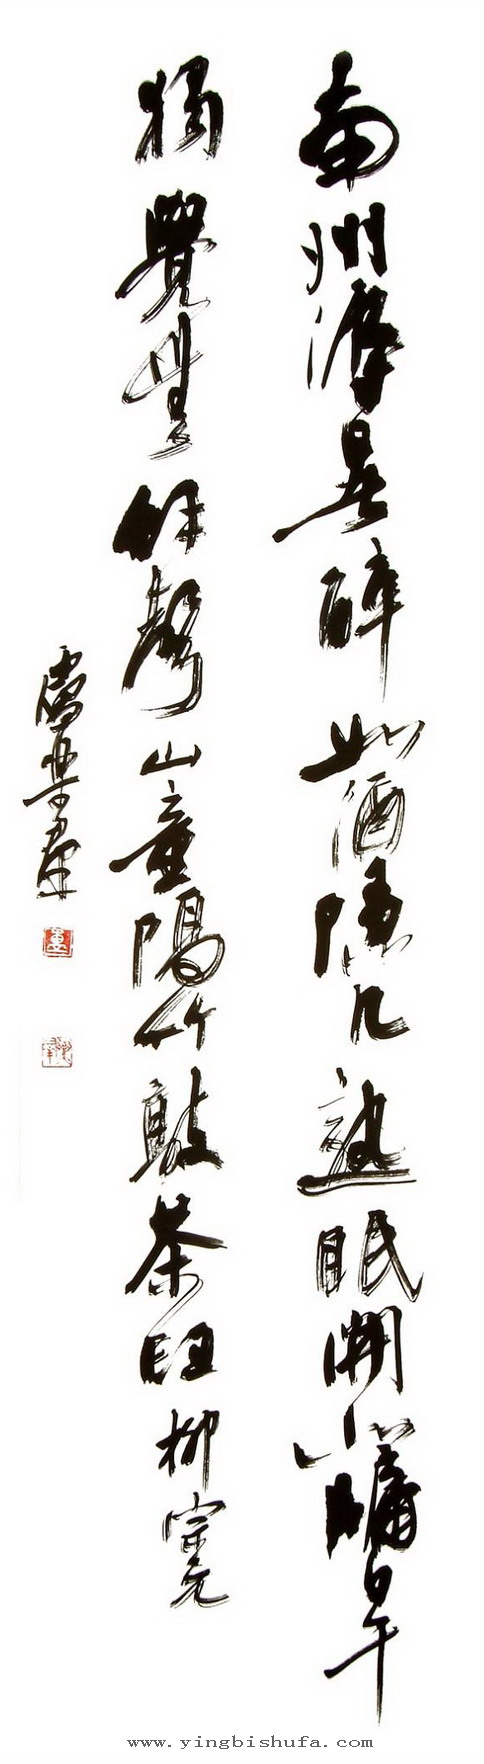 南州溽暑醉如酒隱几熟眠開北牖日午
獨覺無餘聲山童隔竹敲茶臼柳宗元
盧樂群
www.yingbishufa.com